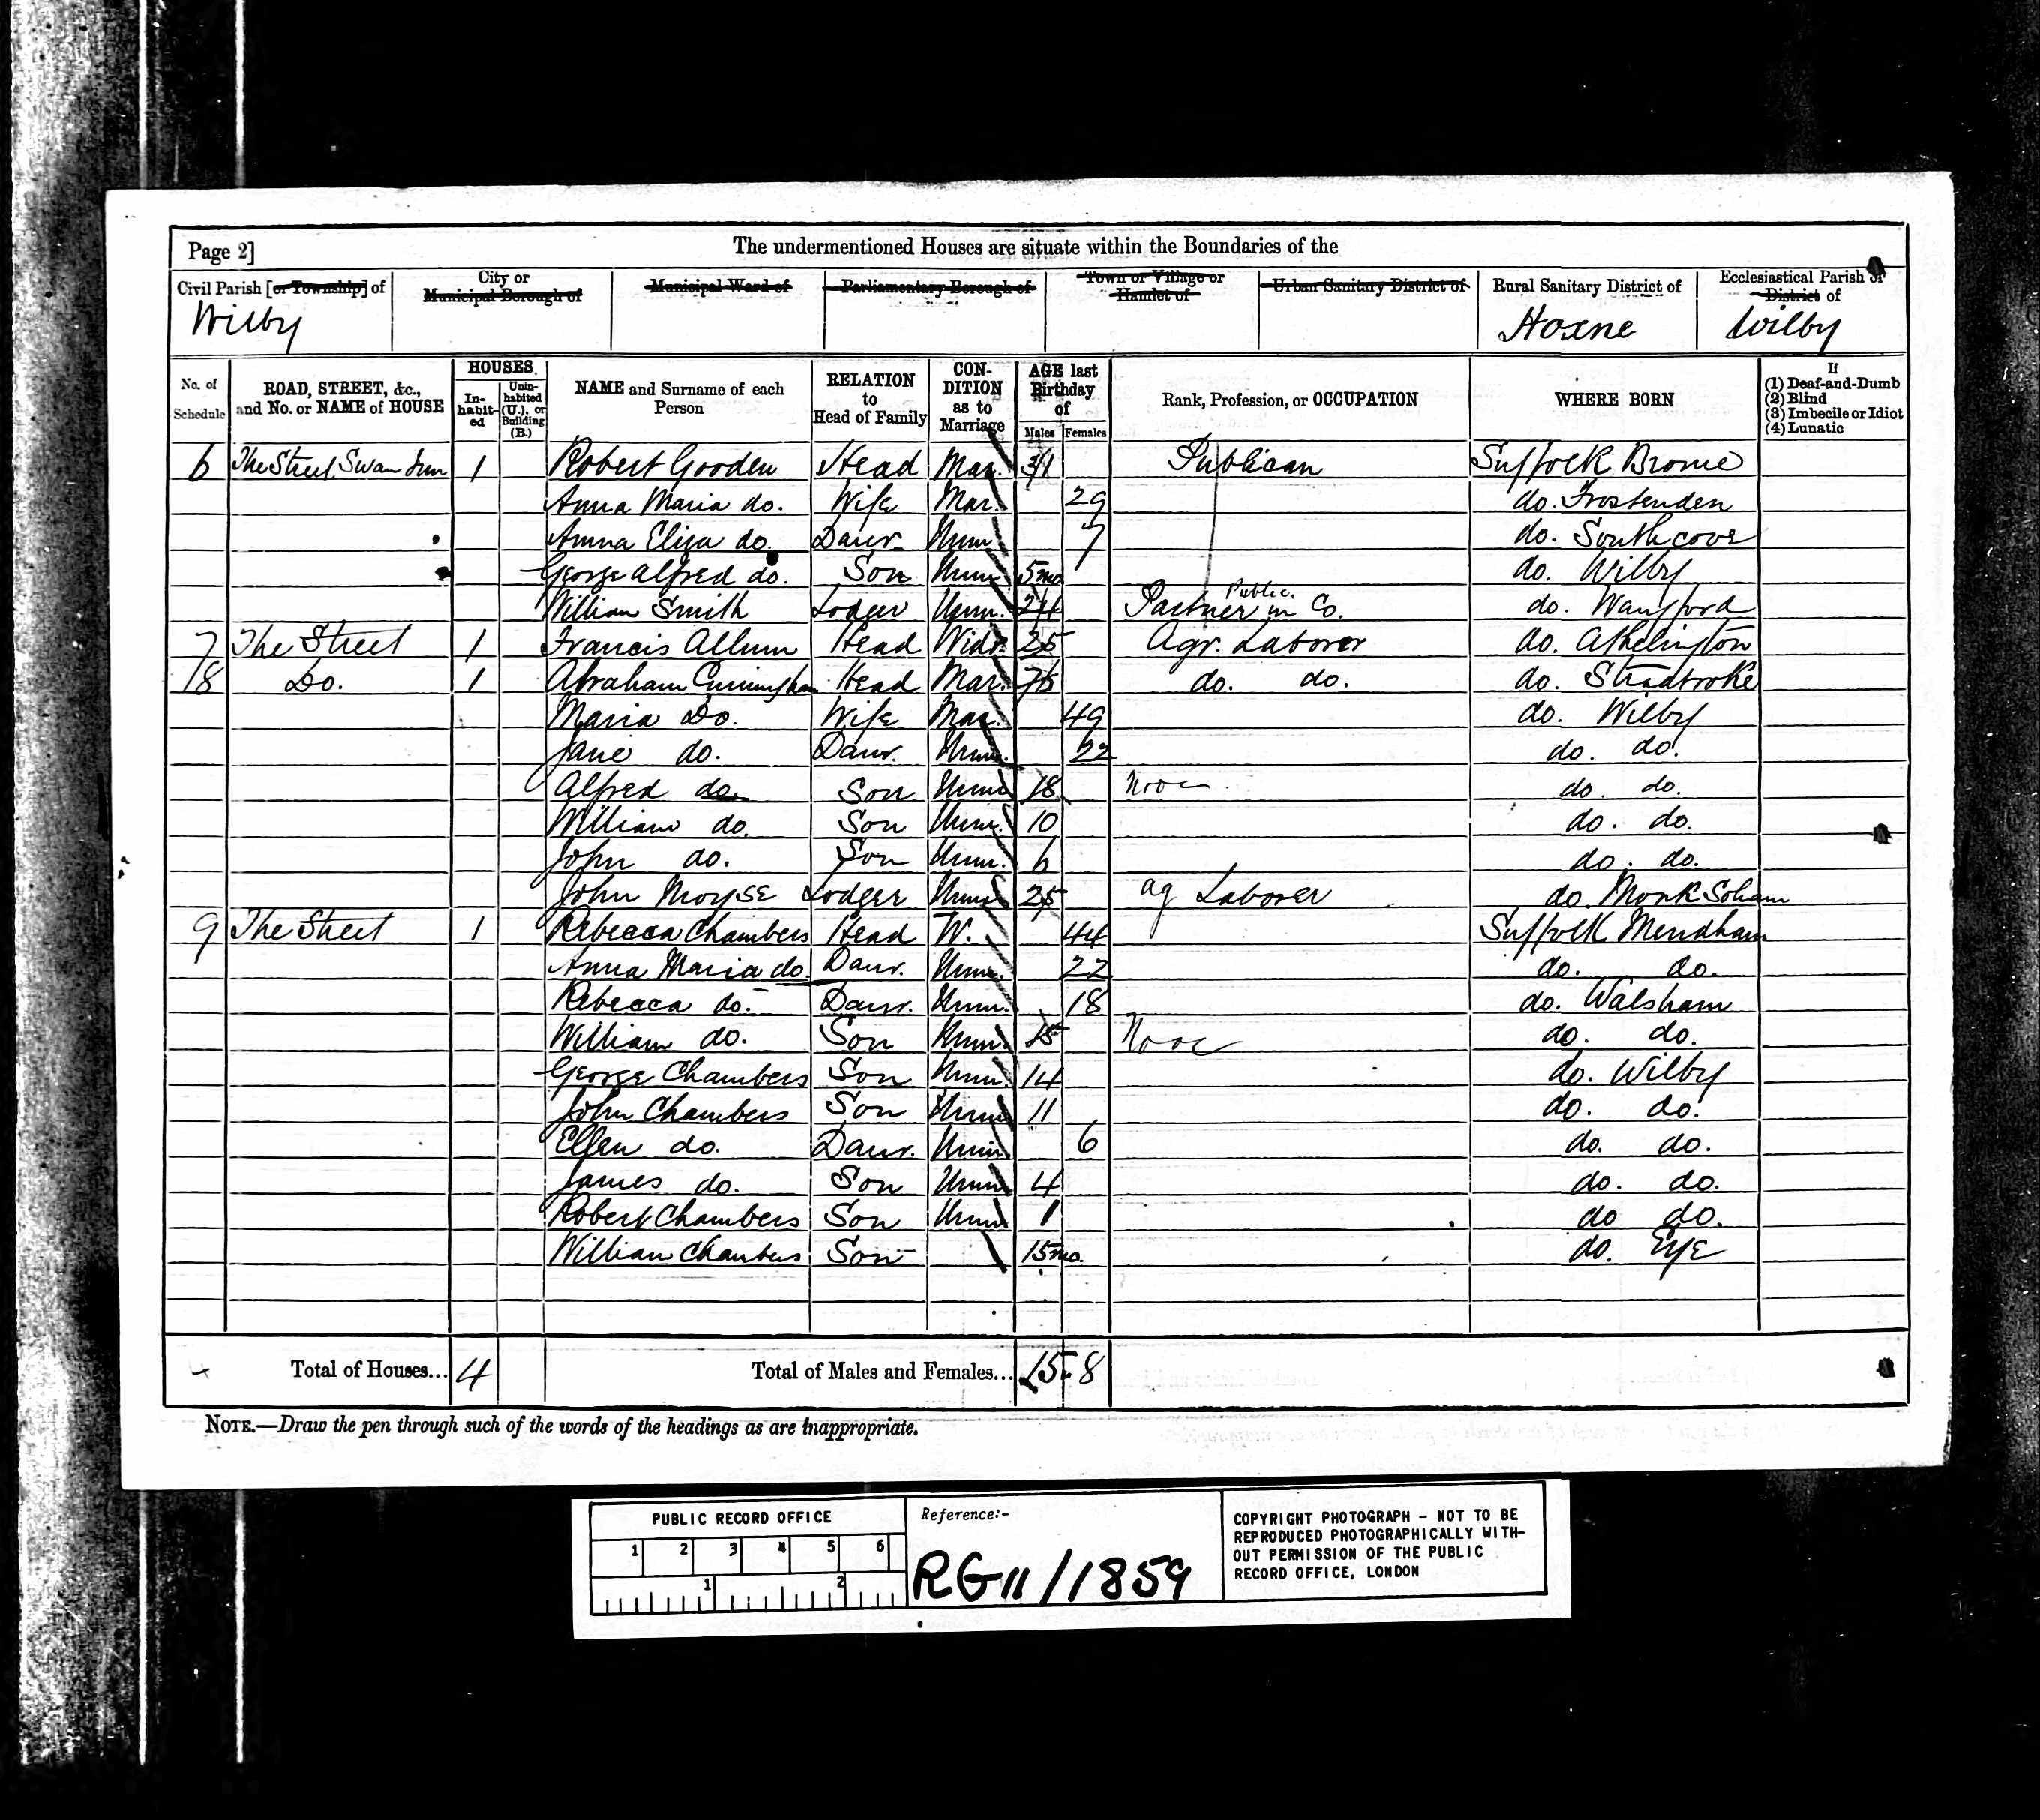 Page 2]
The undermentioned Houses are situate within the Boundaries of the
Civil Parish [or Township] of
Wilby
City or
Municipal Borough of
Municipal Ward of
Parliamentary Borough of
Town or Village or
Hamlet of
Urban Sanitary District of
Rural Sanitary District of
Hoxne
Ecclesiastical Parish or
District of
Wilby
No. of
Schedule
ROAD, STREET, &c.,
and No. or NAME of HOUSE
HOUSES
In-
habit-
ed
Unin-
habited
(U.), or
Building
(B.)
NAME and Surname of each
Person
RELATION
to
Head of Family
CON-
DITION
as to
Marriage
AGE last
Birthday
of
Males Females
Rank, Profession, or OCCUPATION
WHERE BORN
If
(1) Deaf-and-Dumb
(2) Blind
(3) Imbecile or Idiot
(4) Lunatic
6 The Street Swan Inn 1 Robert Gooden Head Mar. 31 Publican Suffolk Brome
Anna Maria do. Wife Mar. 29 do. Frostenden
Anna Eliza do. Daur. Unm 7 do. Southcove
George Alfred do. Son Unm 5mo do. Wilby
William Smith Lodger Unm. 24 Partner in Public. Co. do. Wangford
7 The Street 1 Francis Allum Head Widr. 25 Agr. Laborer do. Athelington
18 Do. 1 Abraham Cunningham Head Mar. 75 do. do. do. Stradbroke
Maria Do. Wife Mar. 49 do. Wilby
Jane do. Daur. Unm. 22 do. do.
Alfred do. Son Unm 18 do. do.
William do. Son Unm. 10 do. do.
John do. Son Unm. 6 do. do.
John Moyse Lodger Unm 25 ag Laborer do. Monk Soham
9 The Street 1 Rebecca Chambers Head W. 44 Suffolk Mendham
Anna Maria do. Daur. Unm. 22 do. do.
Rebecca do. Daur. Unm. 18 do. Walsham
William do. Son Unm. 15 do. do.
George Chambers Son Unm 14 do. Wilby
John Chambers Son Unm 11 do. do.
Ellen do. Daur. Unm. 6 do. do.
James do. Son Unm 4 do. do.
Robert Chambers Son Unm 1 do do.
William Chambers Son 15mo. do. Eye
Total of Houses... 4
Total of Males and Females... 15 8
NOTE.—Draw the pen through such of the words of the headings as are inappropriate.
PUBLIC RECORD OFFICE
1 2 3 4 5 6
1 2
Reference:-
RG 11/1859
COPYRIGHT PHOTOGRAPH - NOT TO BE
REPRODUCED PHOTOGRAPHICALLY WITH-
OUT PERMISSION OF THE PUBLIC
RECORD OFFICE, LONDON